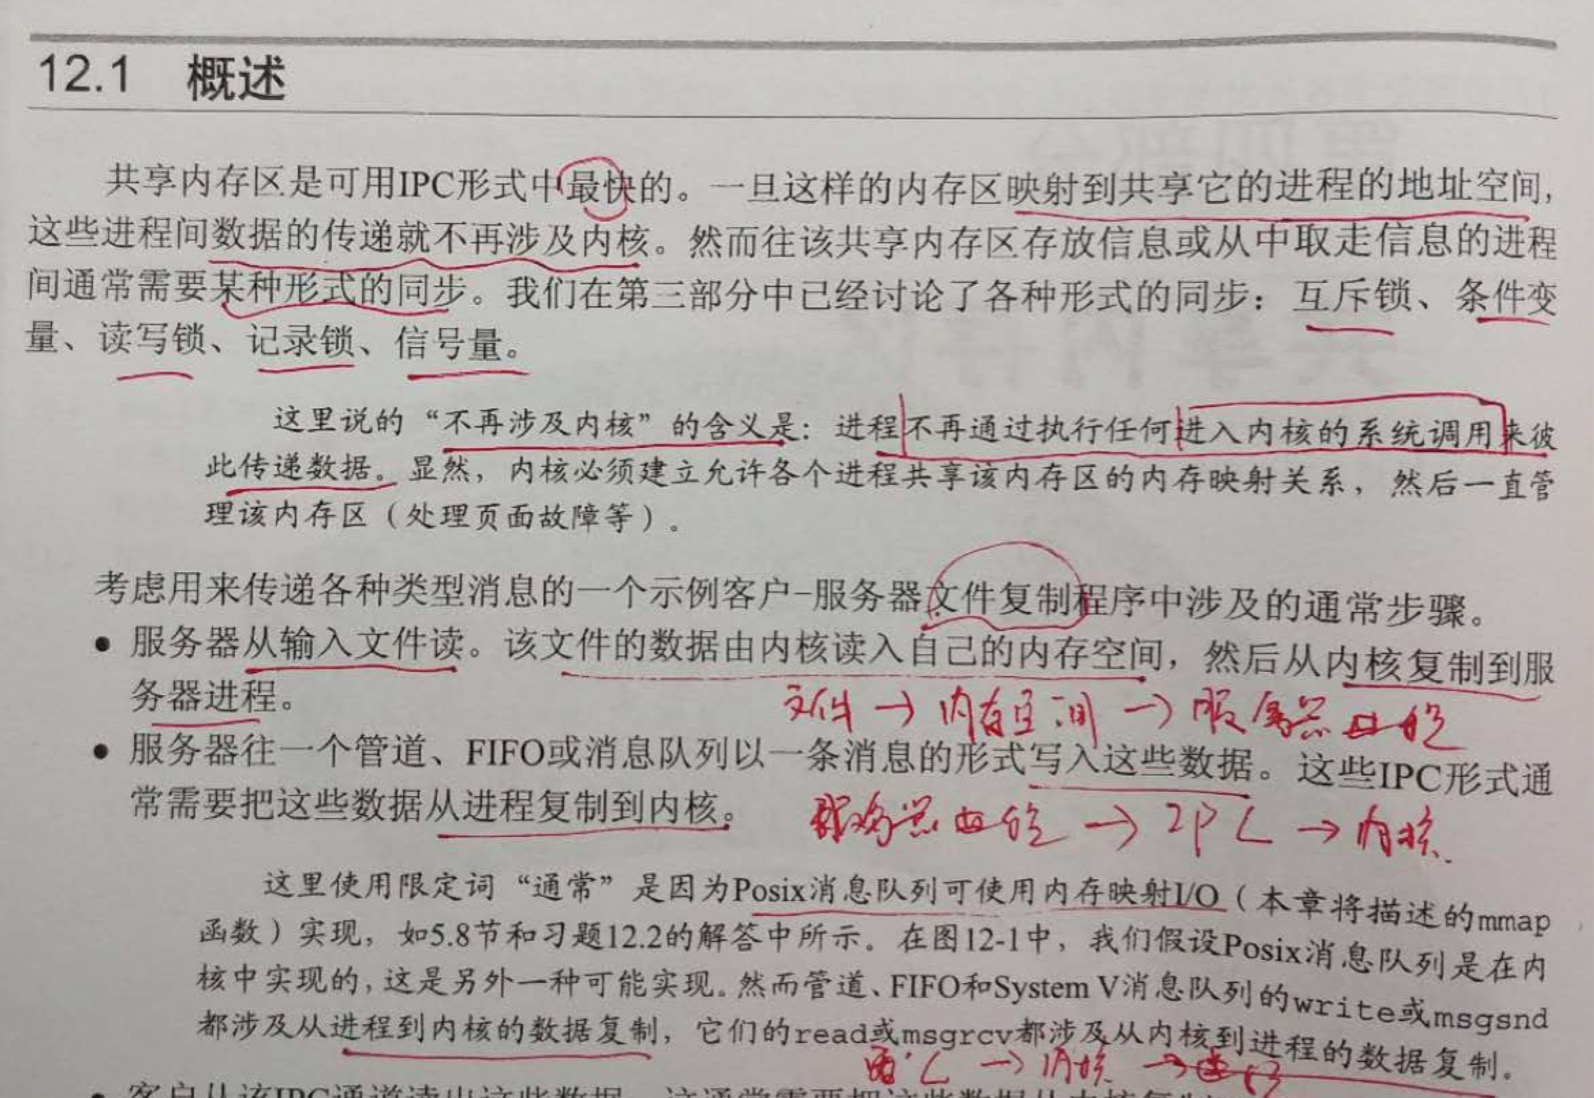 12.1 概述
共享内存区是可用IPC形式中最快的。一旦这样的内存区映射到共享它的进程的地址空间,
这些进程间数据的传递就不再涉及内核。然而往该共享内存区存放信息或从中取走信息的进程
间通常需要某种形式的同步。我们在第三部分中已经讨论了各种形式的同步：互斥锁、条件变
量、读写锁、记录锁、信号量。
这里说的“不再涉及内核”的含义是：进程不再通过执行任何进入内核的系统调用来彼
此传递数据。显然，内核必须建立允许各个进程共享该内存区的内存映射关系，然后一直管
理该内存区（处理页面故障等）。
考虑用来传递各种类型消息的一个示例客户-服务器文件复制程序中涉及的通常步骤。
● 服务器从输入文件读。该文件的数据由内核读入自己的内存空间，然后从内核复制到服
务器进程。
文件 → 内存空间 → 服务器进程
● 服务器往一个管道、FIFO或消息队列以一条消息的形式写入这些数据。这些IPC形式通
常需要把这些数据从进程复制到内核。
服务器进程 → IPC → 内核.
这里使用限定词“通常”是因为Posix消息队列可使用内存映射I/O（本章将描述的mmap
函数）实现，如5.8节和习题12.2的解答中所示。在图12-1中，我们假设Posix消息队列是在内
核中实现的，这是另外一种可能实现。然而管道、FIFO和System V消息队列的write或msgsnd
都涉及从进程到内核的数据复制，它们的read或msgrcv都涉及从内核到进程的数据复制.
→ 内核 →
● 客户从该IPC通道读出这些数据，这通常需要把这些数据从内核复制